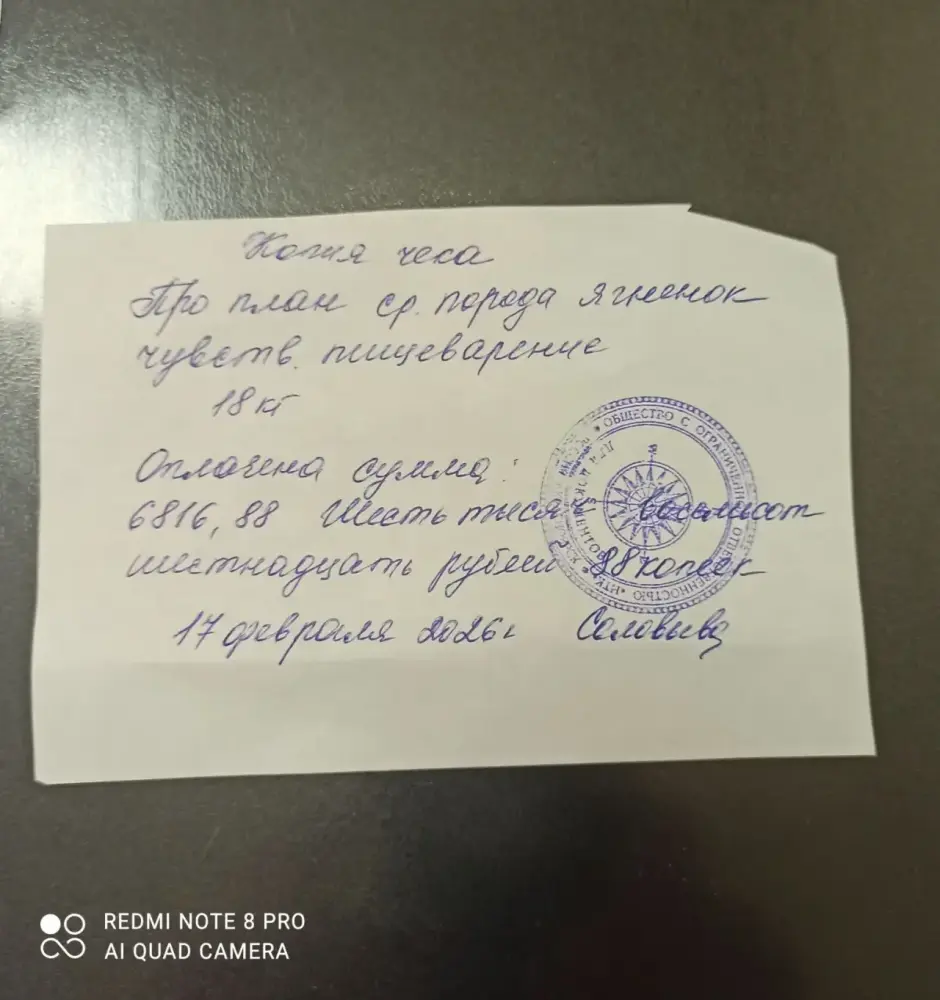 Копия чека
Про план ср. порода ягненок
чувств. пищеварение
18 кг
Оплачена сумма:
6816,88 Шесть тысяч восемьсот
шестнадцать рублей 88 копеек
17 февраля 2026г Соловьева
ОБЩЕСТВО С ОГРАНИЧЕННОЙ ОТВЕТСТВЕННОСТЬЮ
REDMI NOTE 8 PRO
AI QUAD CAMERA